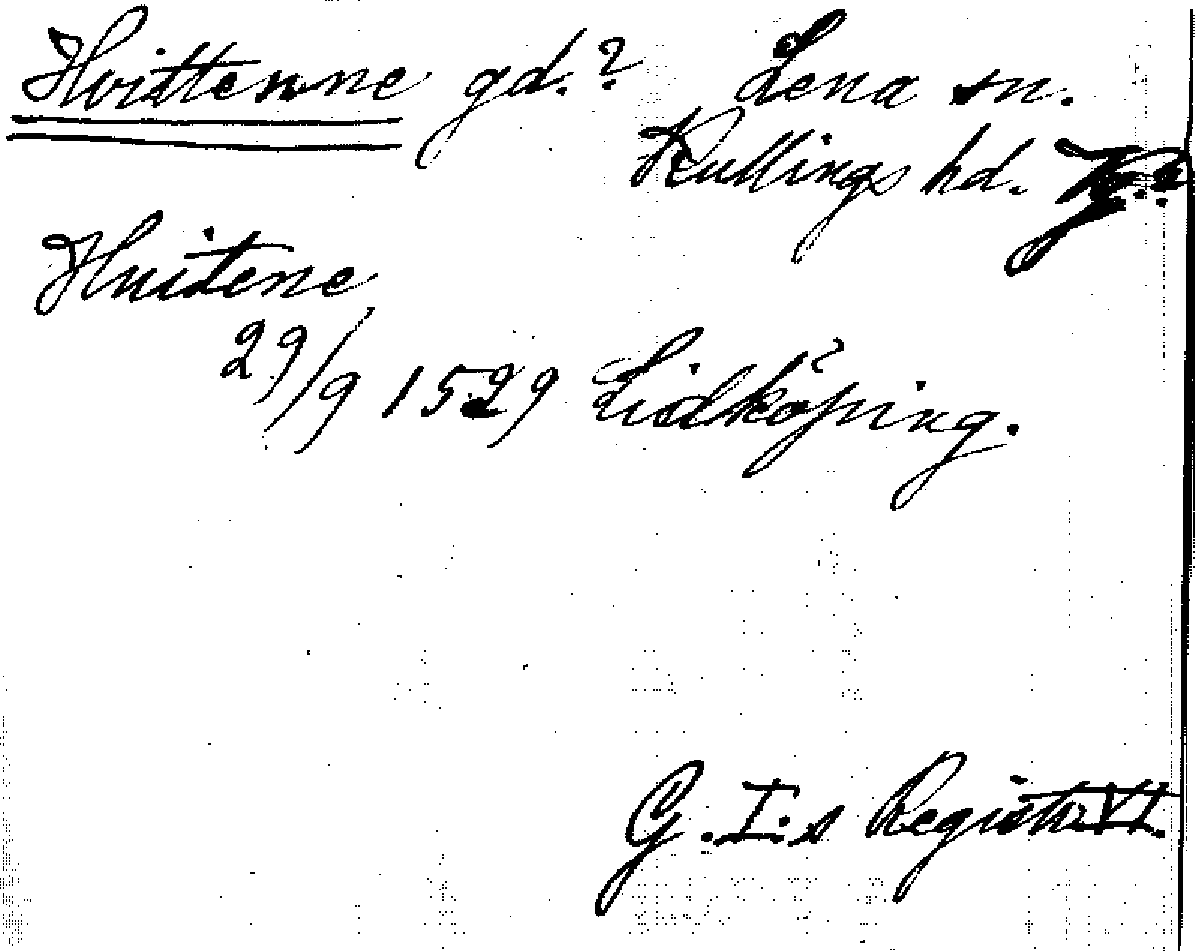 Hvittenne gd.? Lena sn.
Kullings hd. Vg.
Huitene
29/9 1529 Lidköping.
G. I:s Registr. VI.